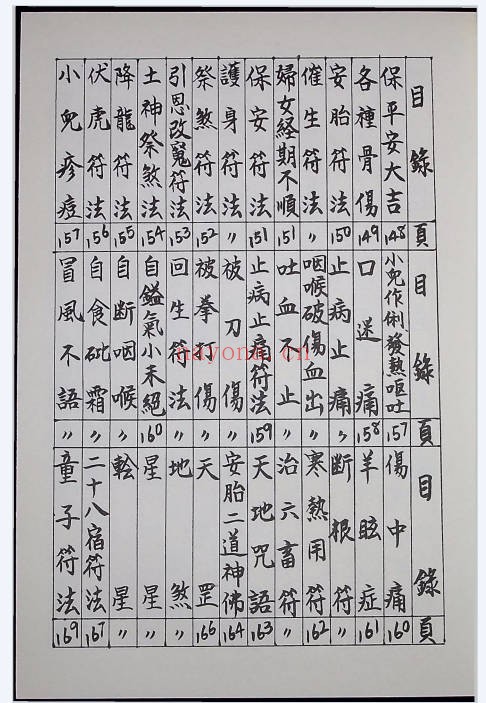 目錄 頁
保平安大吉 148
各種骨傷 149
安胎符法 150
催生符法 〃
婦女経期不順 151
保安符法 151
護身符法 〃
祭煞符法 152
引恩改冤符法 153
土神祭煞法 154
降龍符法 155
伏虎符法 156
小兒疹痘 157
目錄 頁
小兒作俐發熱嘔吐 157
口迷痛 158
止病止痛 〃
咽喉破傷血出 〃
吐血不止 〃
止病止痛符法 159
被刀傷 〃
被拳打傷 〃
回生符法 〃
自鎰氣小未絕 160
自断咽喉 〃
自食砒霜 〃
冒風不語 〃
目錄 頁
傷中痛 160
羊眩症 161
断根符 〃
寒熱用符 162
治六畜符 〃
天地咒語 163
安胎二道神佛 164
天罡 166
地煞 〃
星星 〃
幹星 〃
二十八宿符法 167
童子符法 169
nayona.cn